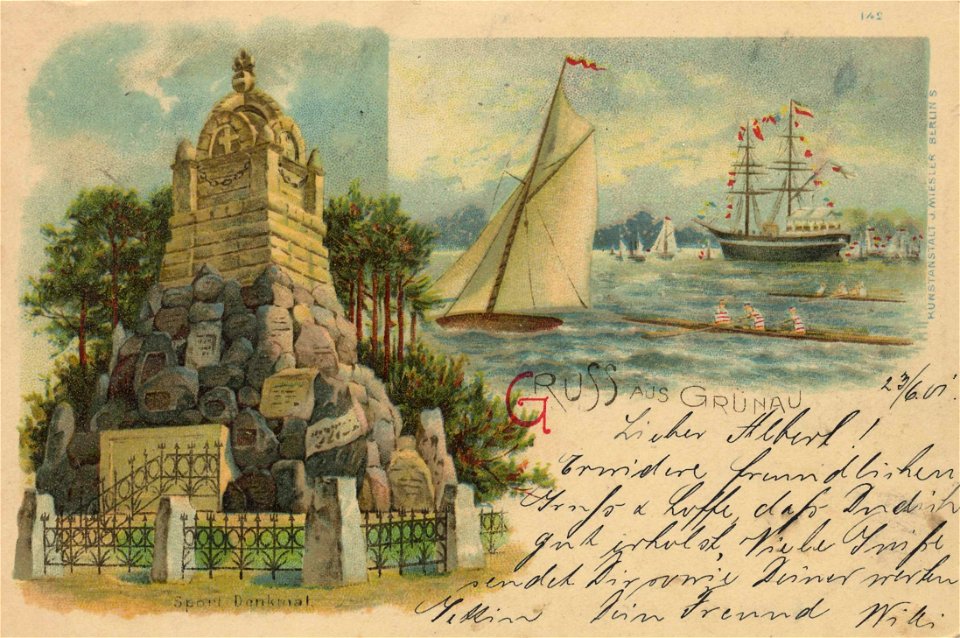 142
KUNSTANSTALT J. MIESLER BERLIN S
GRUSS AUS GRÜNAU
23/6.01.
Lieber Albert!
Erwidere freundlichen
Gruß & hoffe, daß Du dich
gut erholst, Viele Grüße
sendet Dir sowie Deiner werten
Dein Freund Willi
Sport Denkmal.